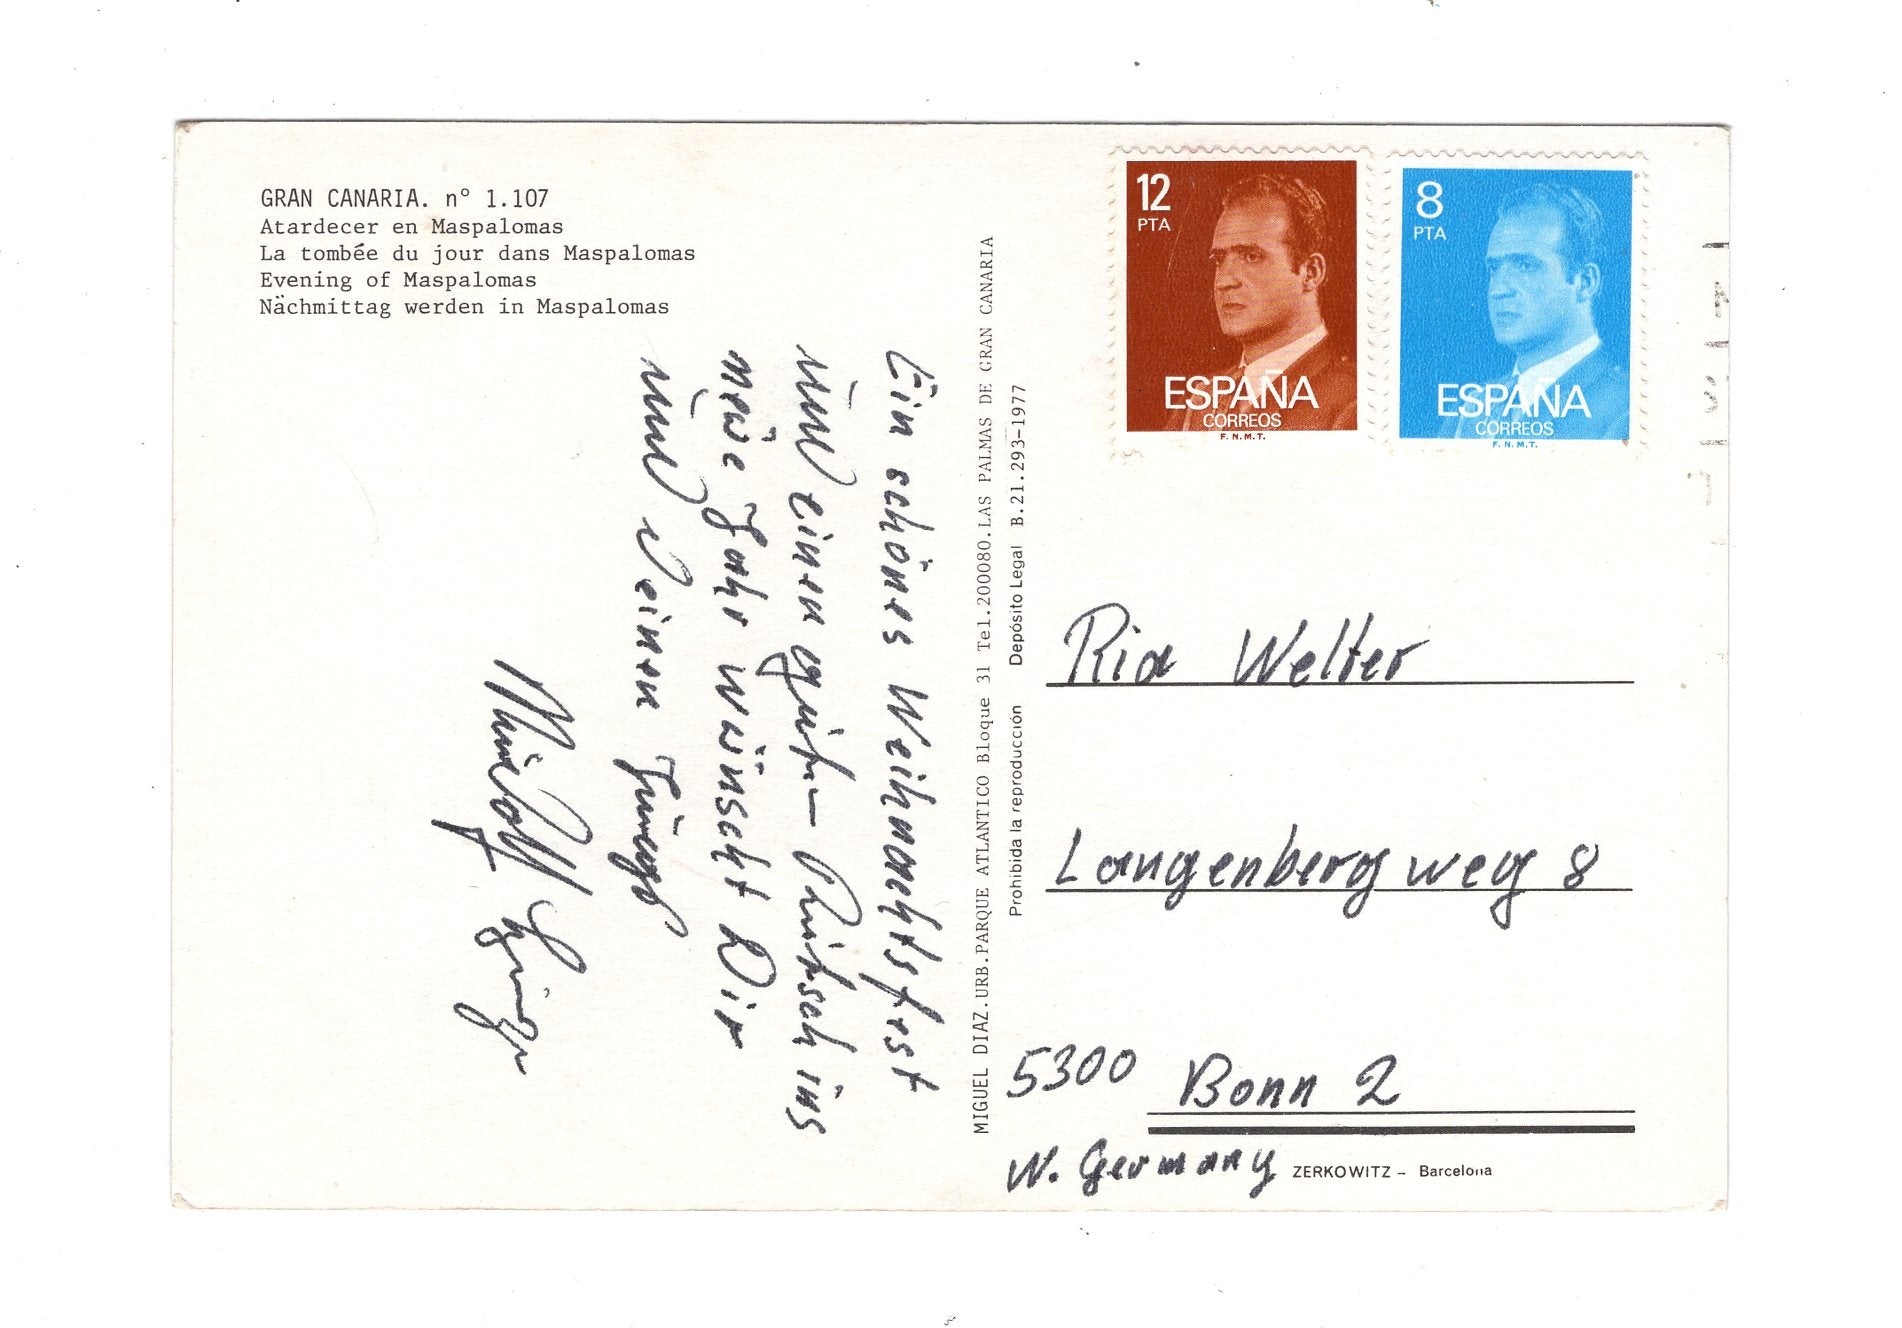 GRAN CANARIA. n° 1.107
Atardecer en Maspalomas
La tombée du jour dans Maspalomas
Evening of Maspalomas
Nächmittag werden in Maspalomas
Ein schönes Weihnachtsfest
und einen guten Rutsch ins
neue Jahr wünscht Dir
und Deinen
MIGUEL DIAZ.URB.PARQUE ATLANTICO Bloque 31 Tel.200080.LAS PALMAS DE GRAN CANARIA
Prohibida la reproducción Depósito Legal B.21.293-1977
12
PTA
ESPAÑA
CORREOS
F.N.M.T.
8
PTA
ESPAÑA
CORREOS
F.N.M.T.
Ria Welter
Langenbergweg 8
5300 Bonn 2
W. Germany
ZERKOWITZ – Barcelona